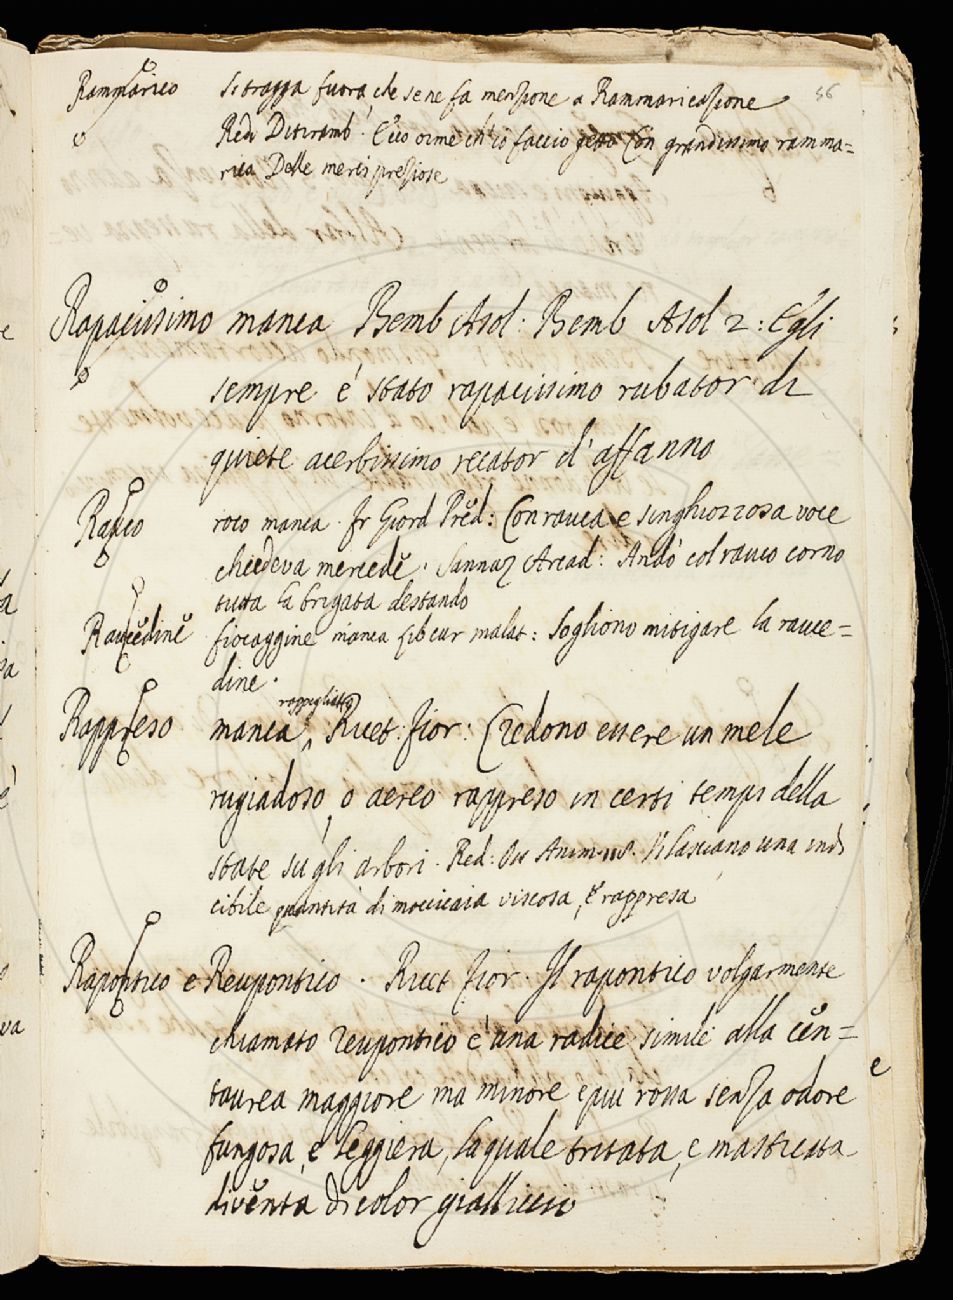 56
Rammarico si tragga fuora, che se ne fa menzione a Rammaricazione
Redi Ditiramb. Ecco oimè ch'io faccio getto Con grandissimo ramma=
rico Delle merci preziose
Rapacissimo manca Bemb Asol. Bemb Asol 2: Egli
sempre é stato rapacissimo rubator di
quiete acerbissimo recator d'affanno
Rauco roco manca. fr Giord Pred: Con rauca e singhiozzosa voce
chiedeva mercede. Sannaz Arcad: Andò col rauco corno
tutta la brigata destando
Raucedine fiocaggine manca lib cur malat: Sogliono mitigare la rauce=
dine.
rappigliato
Rappreso manca, Ricet. fior: Credono essere un mele
rugiadoso, o aereo rappreso in certi tempi della
state su gli arbori. Red: Oss Anim. 118. Vi lasciano una indi
cibile quantità di moccicaia viscosa, e rappresa
Rapontico e Reupontico. Ricet fior. Il rapontico volgarmente
chiamato reupontico e una radice simile alla cen=
taurea maggiore ma minore e piu rossa senza odore
fungosa, e leggiera, la quale tritata, e masticata
diventa di color gialliccio
e